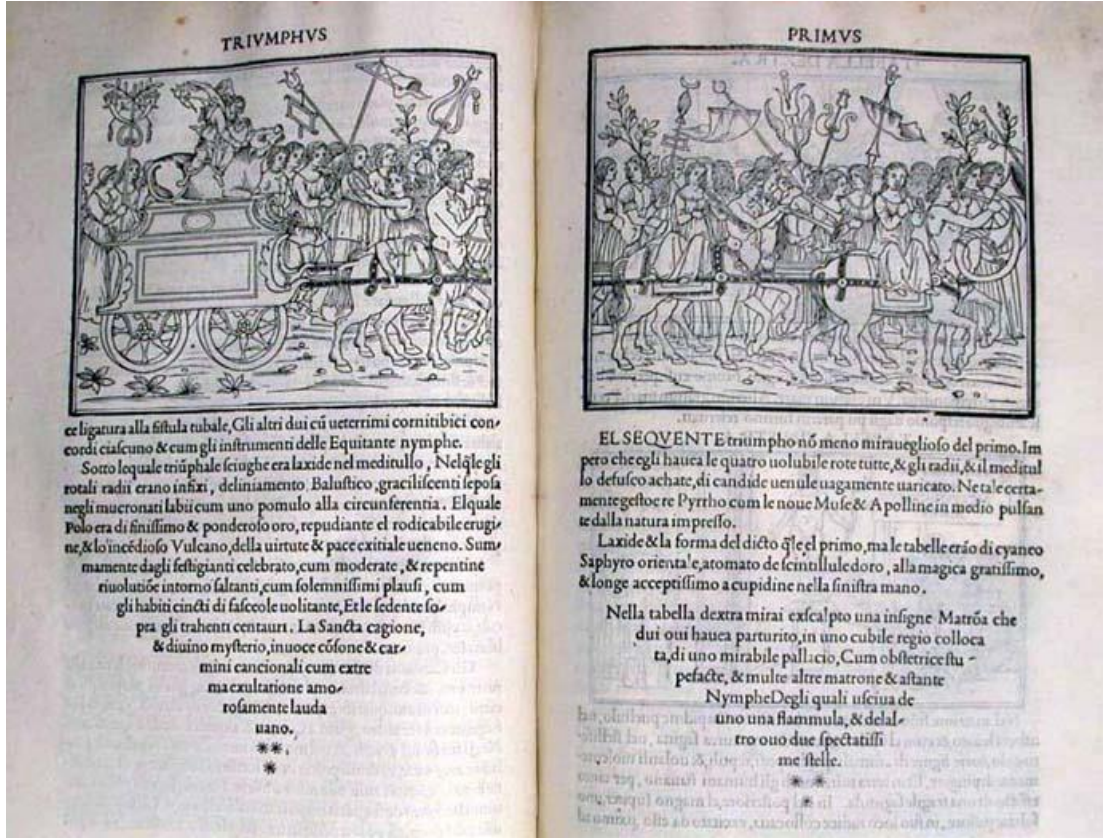 TRIVMPHVS
ce ligatura alla fistula tubale, Gli altri dui cũ ueterrimi cornitibici con-
cordi ciascuno & cum gli instrumenti delle Equitante nymphe.
Sotto lequale triũphale seiughe era laxide nel meditullo, Nelq̃le gli
rotali radii erano infixi, deliniamento Balustico, graciliscenti seposa
negli mucronati labii cum uno pomulo alla circunferentia. Elquale
Polo era di finissimo & ponderoso oro, repudiante el rodicabile erugi-
ne, & lo incẽdioso Vulcano, della uirtute & pace exitiale ueneno. Sum-
mamente dagli festigianti celebrato, cum moderate, & repentine
riuolutiõe intorno saltanti, cum solemnissimi plausi, cum
gli habiti cincti di fasceole uolitante, Et le sedente so-
pra gli trahenti centauri. La Sancta cagione,
& diuino mysterio, in uoce cõsone & car-
mini cancionali cum extre
ma exultatione amo-
rosamente lauda
uano.
**.
*
PRIMVS
EL SEQVENTE triumpho nõ meno miraueglioso del primo. Im
pero che egli hauea le quatro uolubile rote tutte, & gli radii, & il meditul
lo defusco achate, di candide uenule uagamente uaricato. Ne tale certa-
mente gestoe re Pyrrho com le noue Muse & Apolline in medio pulsan
te dalla natura impresso.
Laxide & la forma del dicto q̃le el primo, ma le tabelle erão di cyaneo
Saphyro orientale, atomato de scintillule doro, alla magica gratissimo,
& longe acceptissimo a cupidine nella sinistra mano.
Nella tabella dextra mirai exscalpto una insigne Matrõa che
dui oui hauea parturito, in uno cubile regio colloca
ta, di uno mirabile pallacio, Cum obstetrice stu-
pefacte, & multe altre matrone & astante
Nymphe Degli quali usciua de
uno una flammula, & delal-
tro ouo due spectatissi
me stelle.
* *
*